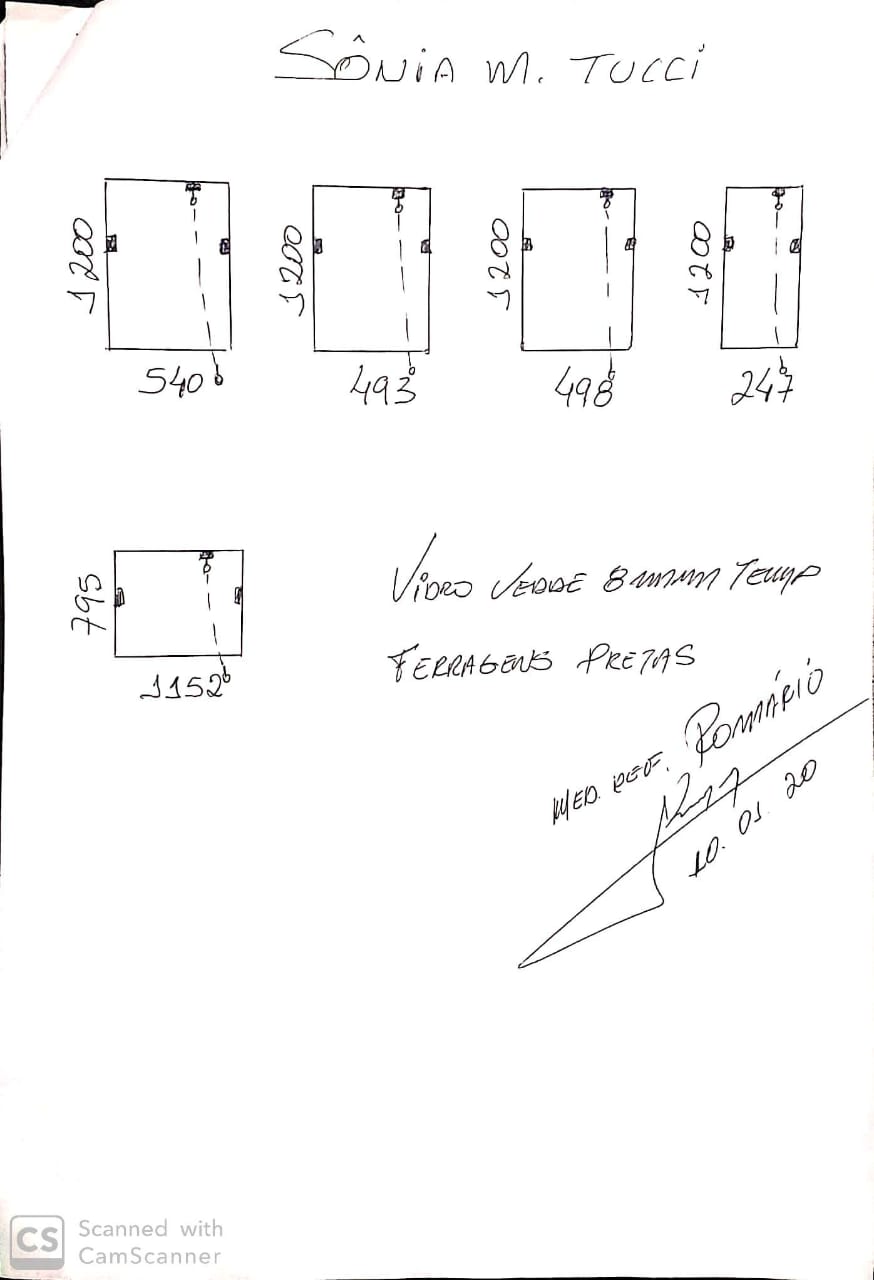 SÔNIA M. TUCCI
1200
1200
1200
1200
540
493
498
247
795
1152
VIDRO VERDE 8mm TEMP
FERRAGENS PRETAS
MED. REF. ROMÁRIO
10.01.20
CS Scanned with
CamScanner